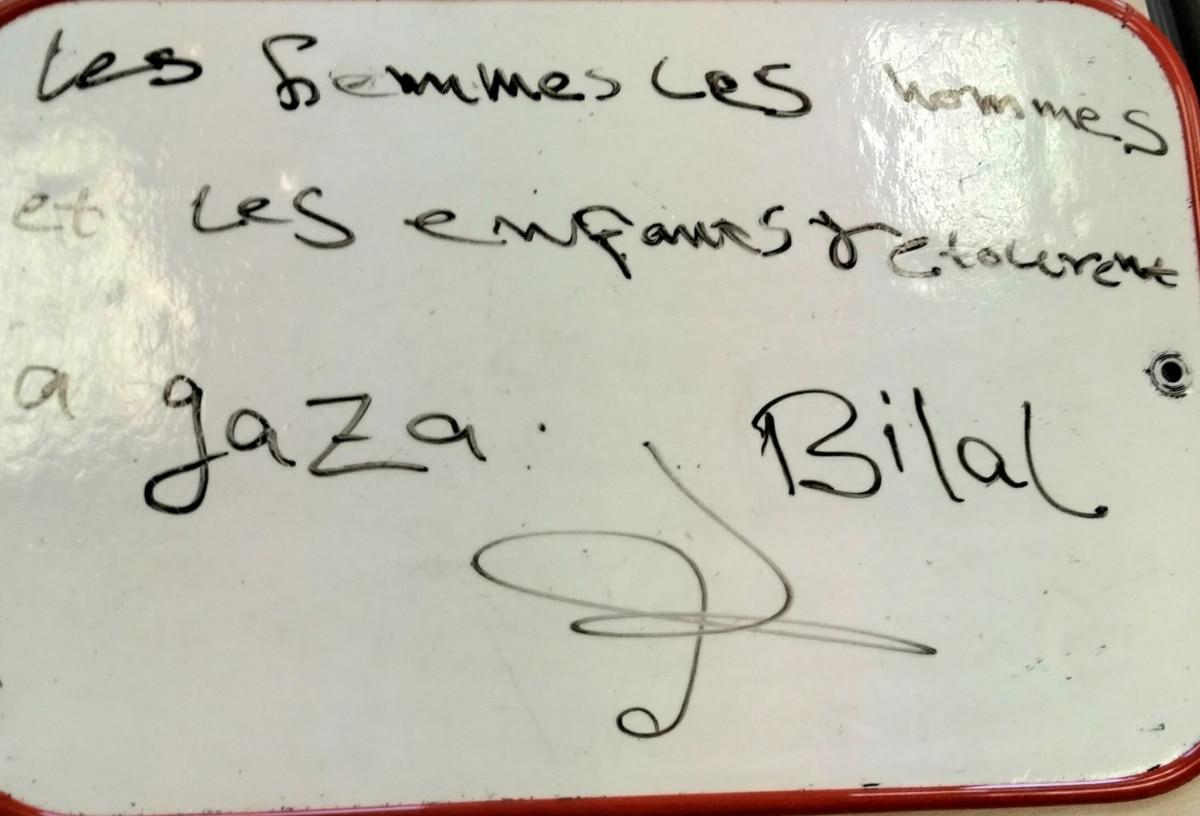 Les femmes Les hommes
et Les enfants retourent
a gaza. Bilal